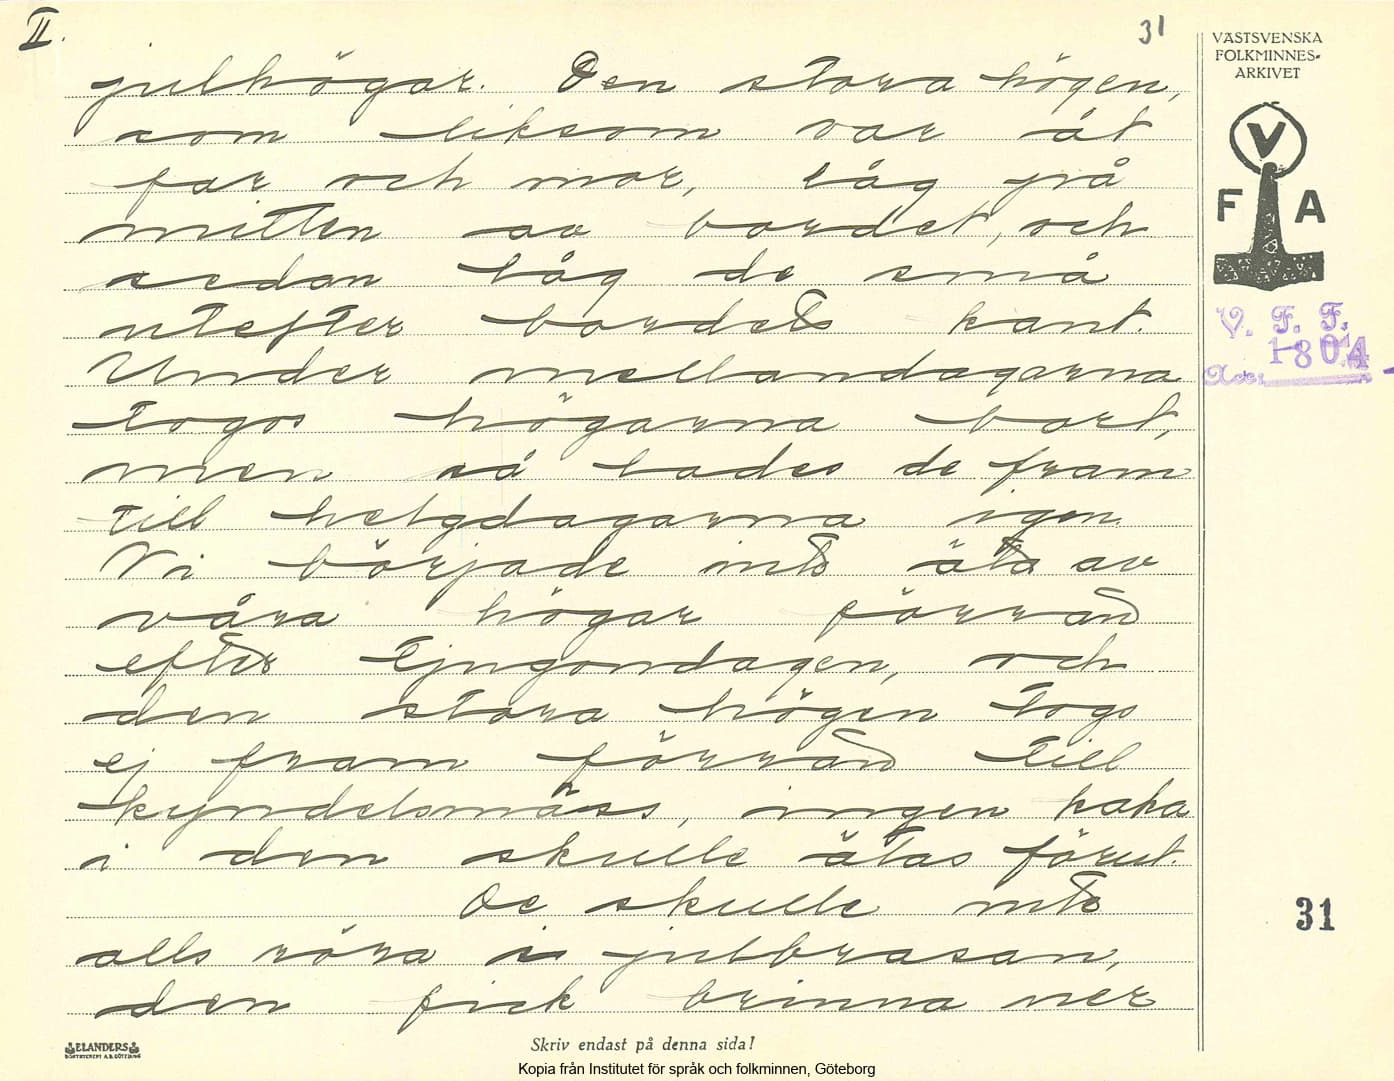 II.
31
julhögar. Den stora högen,
som liksom var åt
far och mor, låg på
mitten av bordet, och
sedan låg de små
utefter bordets kant.
Under mellandagarna
togos högarna bort,
men så lades de fram
till helgdagarna igen.
Vi började inte äta av
våra högar förrän
efter tjugondagen, och
den stora högen togs
ej fram förrän till
kyndelsmäss, ingen kaka
i den skulle ätas förut.
De skulle inte
alls röra i julbrasan,
den fick brinna ner
VÄSTSVENSKA
FOLKMINNES-
ARKIVET
V
F A
V. F. F.
1804
Acc.
31
ELANDERS
BOKTRYCKERI A.B. GÖTEBORG
Skriv endast på denna sida!
Kopia från Institutet för språk och folkminnen, Göteborg